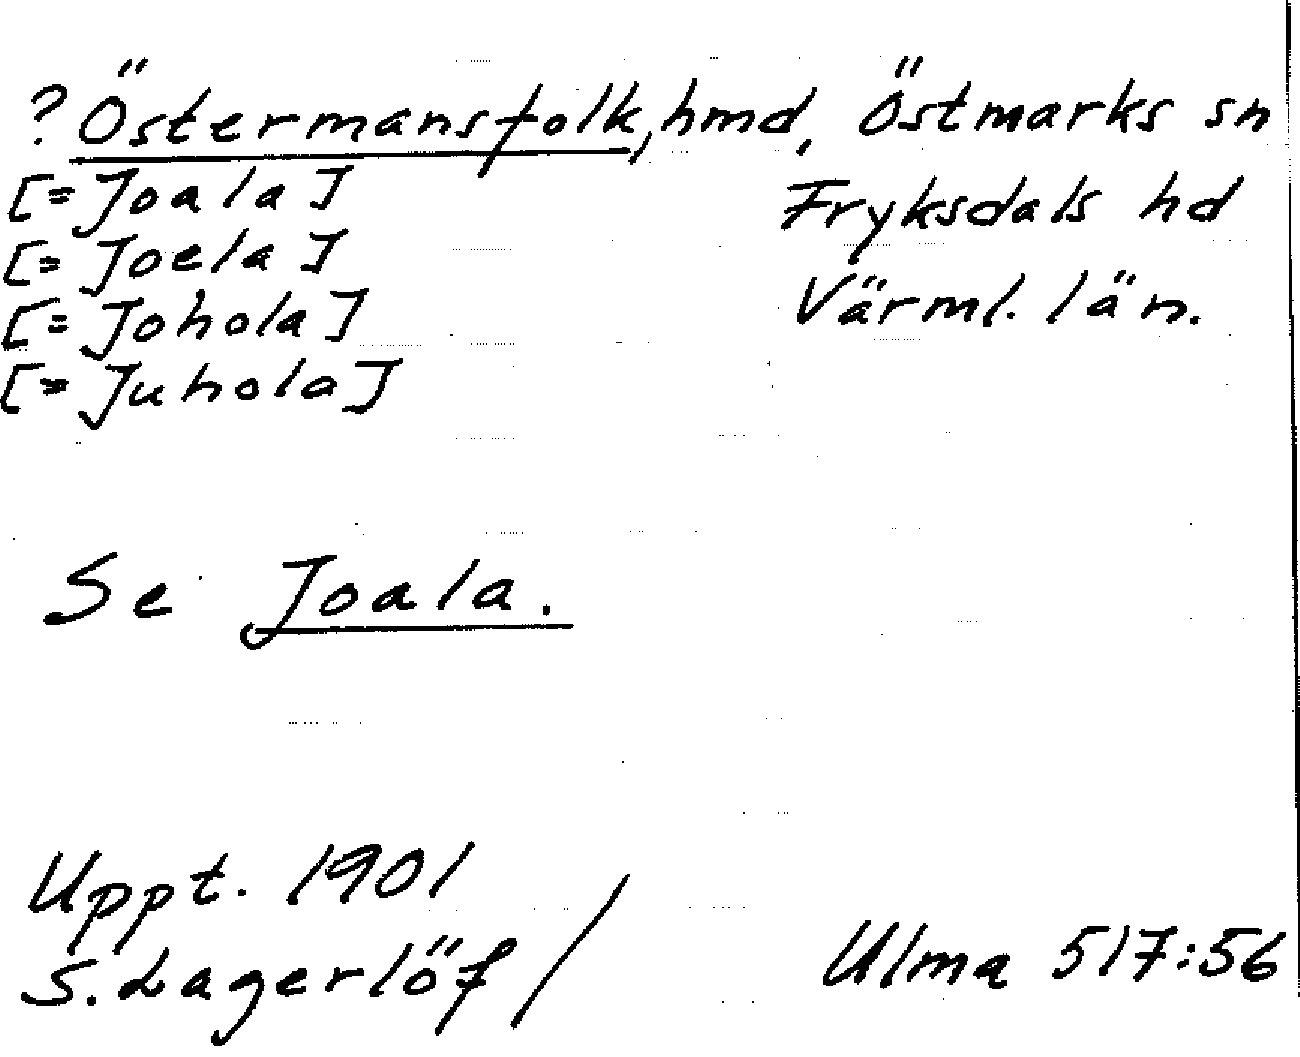 ? Östermansfolk, hmd, Östmarks sn
[= Joala] Fryksdals hd
[= Joela] Värml. län.
[= Johola]
[= Juhola]
Se Joala.
Uppt. 1901
S. Lagerlöf / Ulma 517:56